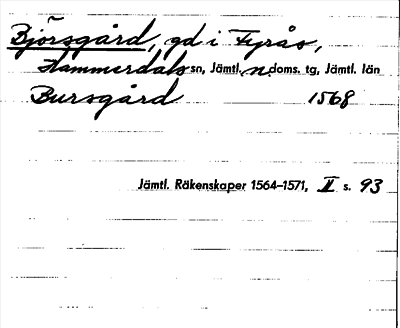 Björsgård, gd i Fyrås,
Hammerdals sn, Jämtl. n. doms. tg, Jämtl. län
Bursgård 1568
Jämtl. Räkenskaper 1564–1571, II s. 93